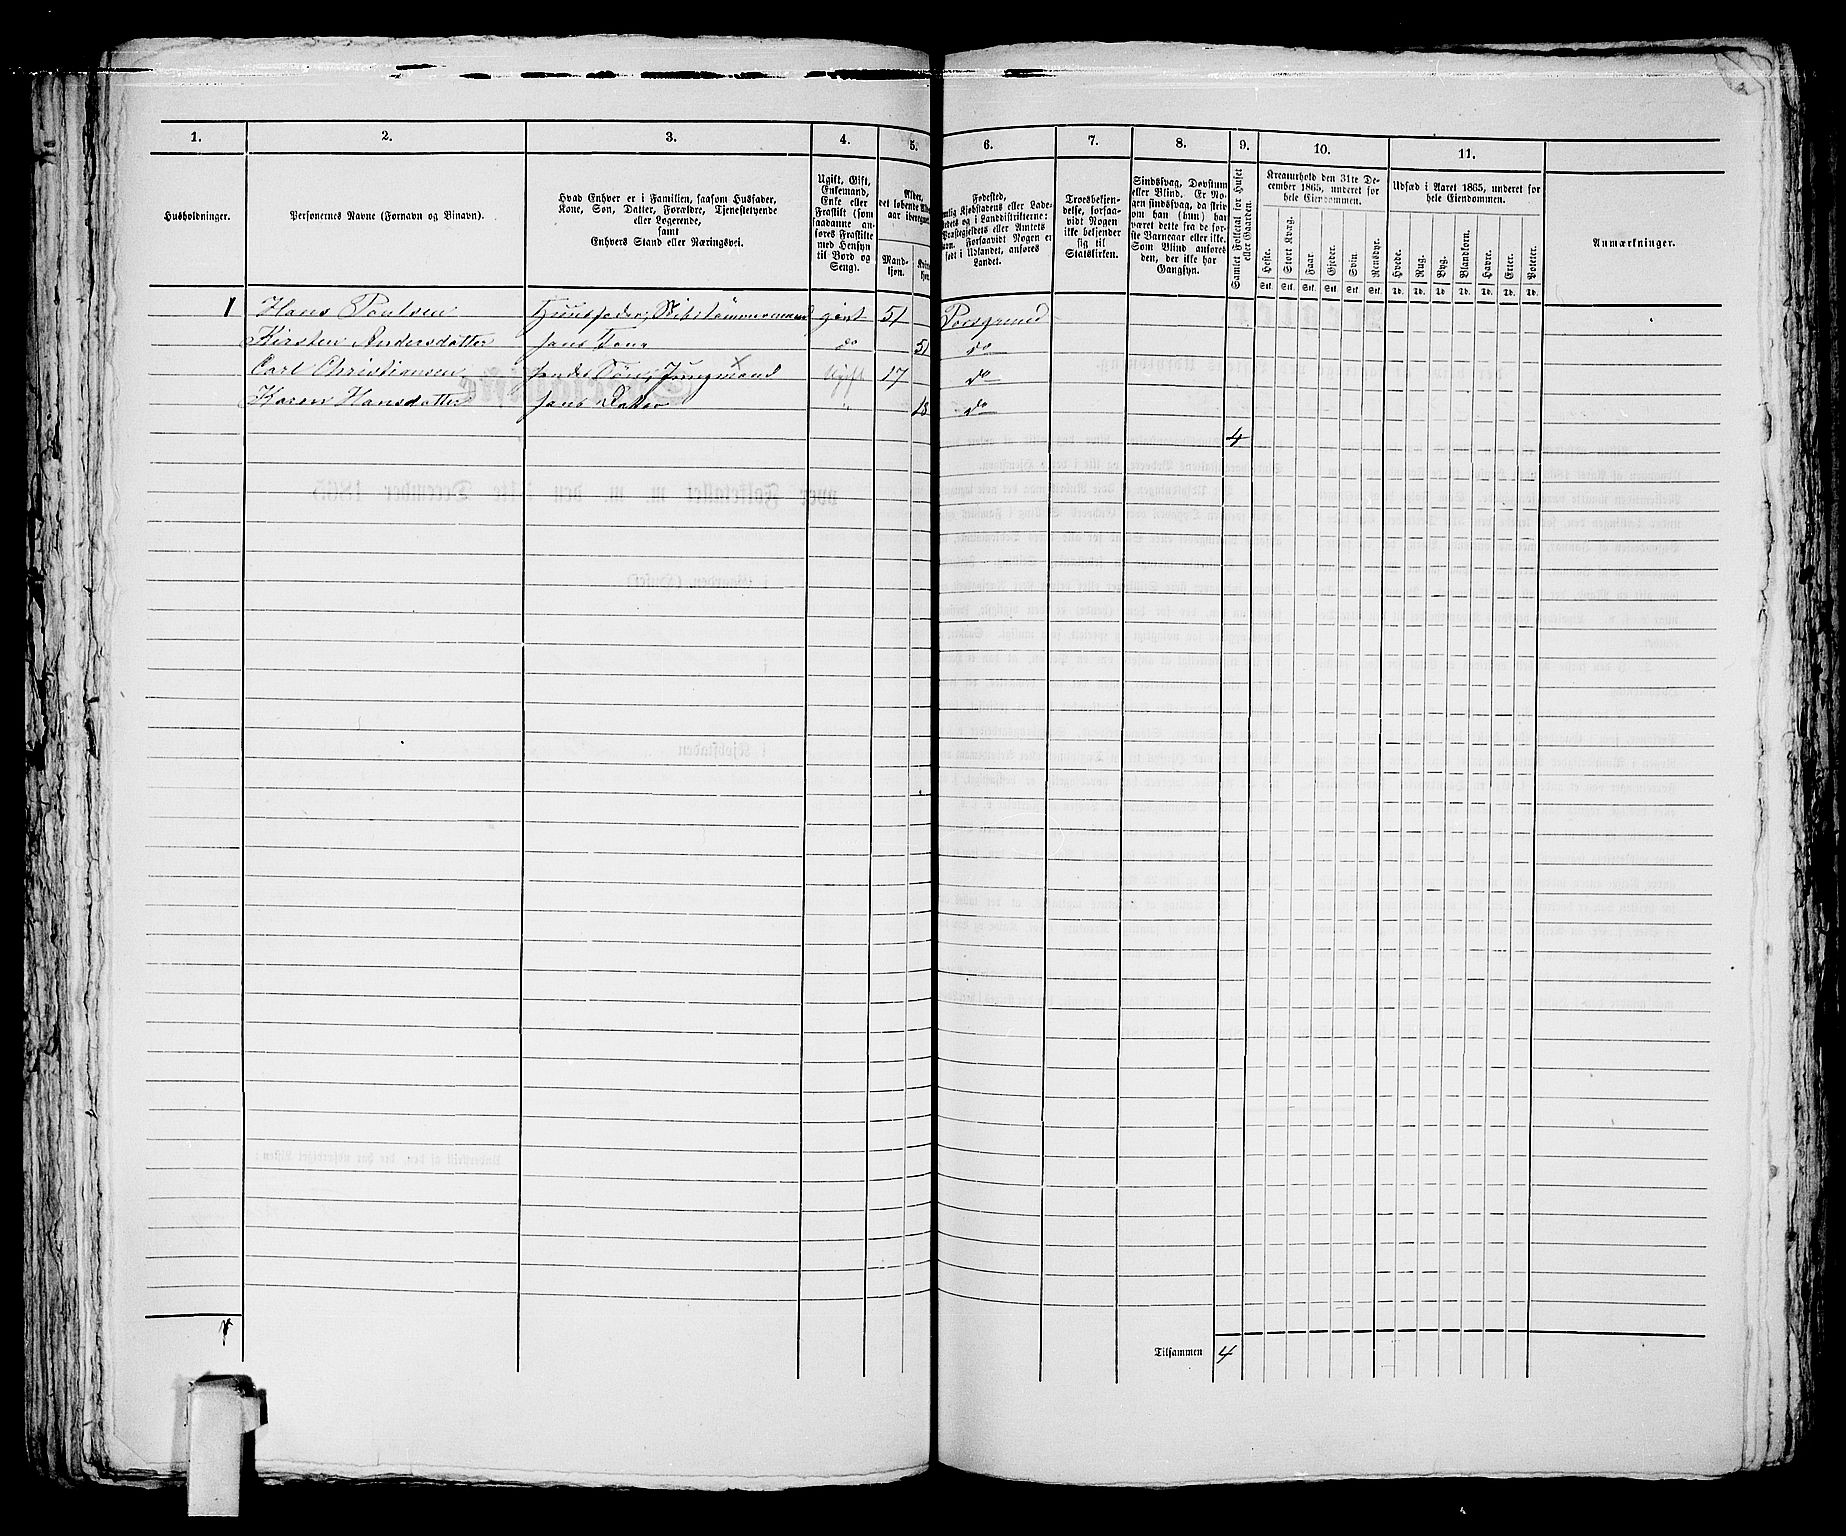 1. 2. 3. 4. 5. 6. 7. 8. 9. 10. 11.
Husholdninger.
Personernes Navne (Fornavn og Binavn).
Hvad Enhver er i Familien, saasom Husfader,
Kone, Søn, Datter, Forældre, Tjenestetyende
eller Logerende,
samt
Enhvers Stand eller Næringsvei.
Ugift, Gift,
Enkemand,
Enke eller
Fraskilt (som
saadanne an-
føres Fraskilte
med Hensyn
til Bord og
Seng).
Alder,
det løbende
aar iberegnet
Mand-
kjøn.
Kvin
kjø
Fødested,
Kjøbstadens eller Lade-
stedets og i Landdistrikterne:
Præstegjeldets eller Amtets
Navn. Forsaavidt Nogen er
født i Udlandet, anføres
Landet.
Troesbekjen-
delse, forsaa-
vidt Nogen
ikke bekjender
sig til
Statskirken.
Sindssvag, Døvstum
eller Blind. Er No-
gen sindssvag, da skriv
om han (hun) har
været dette fra de før-
ste Barneaar eller ikke.
Som Blind anføres
den, der ikke har
Gangsyn.
Samlet Folketal for Huset
eller Gaarden.
Kreaturhold den 31te De-
cember 1865, underet for
hele Eiendommen.
Heste. Stort Kvæg. Faar. Gjeder. Svin. Rensdyr.
Stk. Stk. Stk. Stk. Stk. Stk.
Udsæd i Aaret 1865, underet for
hele Eiendommen.
Hvede. Rug. Byg. Blandkorn. Havre. Erter. Poteter.
Td. Td. Td. Td. Td. Td. Td.
Anmærkninger.
1 Hans Poulsen Huusfader, Skibstømmermand givt 51 Porsgrund
Kirsten Andersdatter hans Kone do 51 do
Carl Christiansen hendes Søn, Jungmand Ugift 17 do
Karen Hansdatter hans Datter " 18 do
4
Tilsammen 4